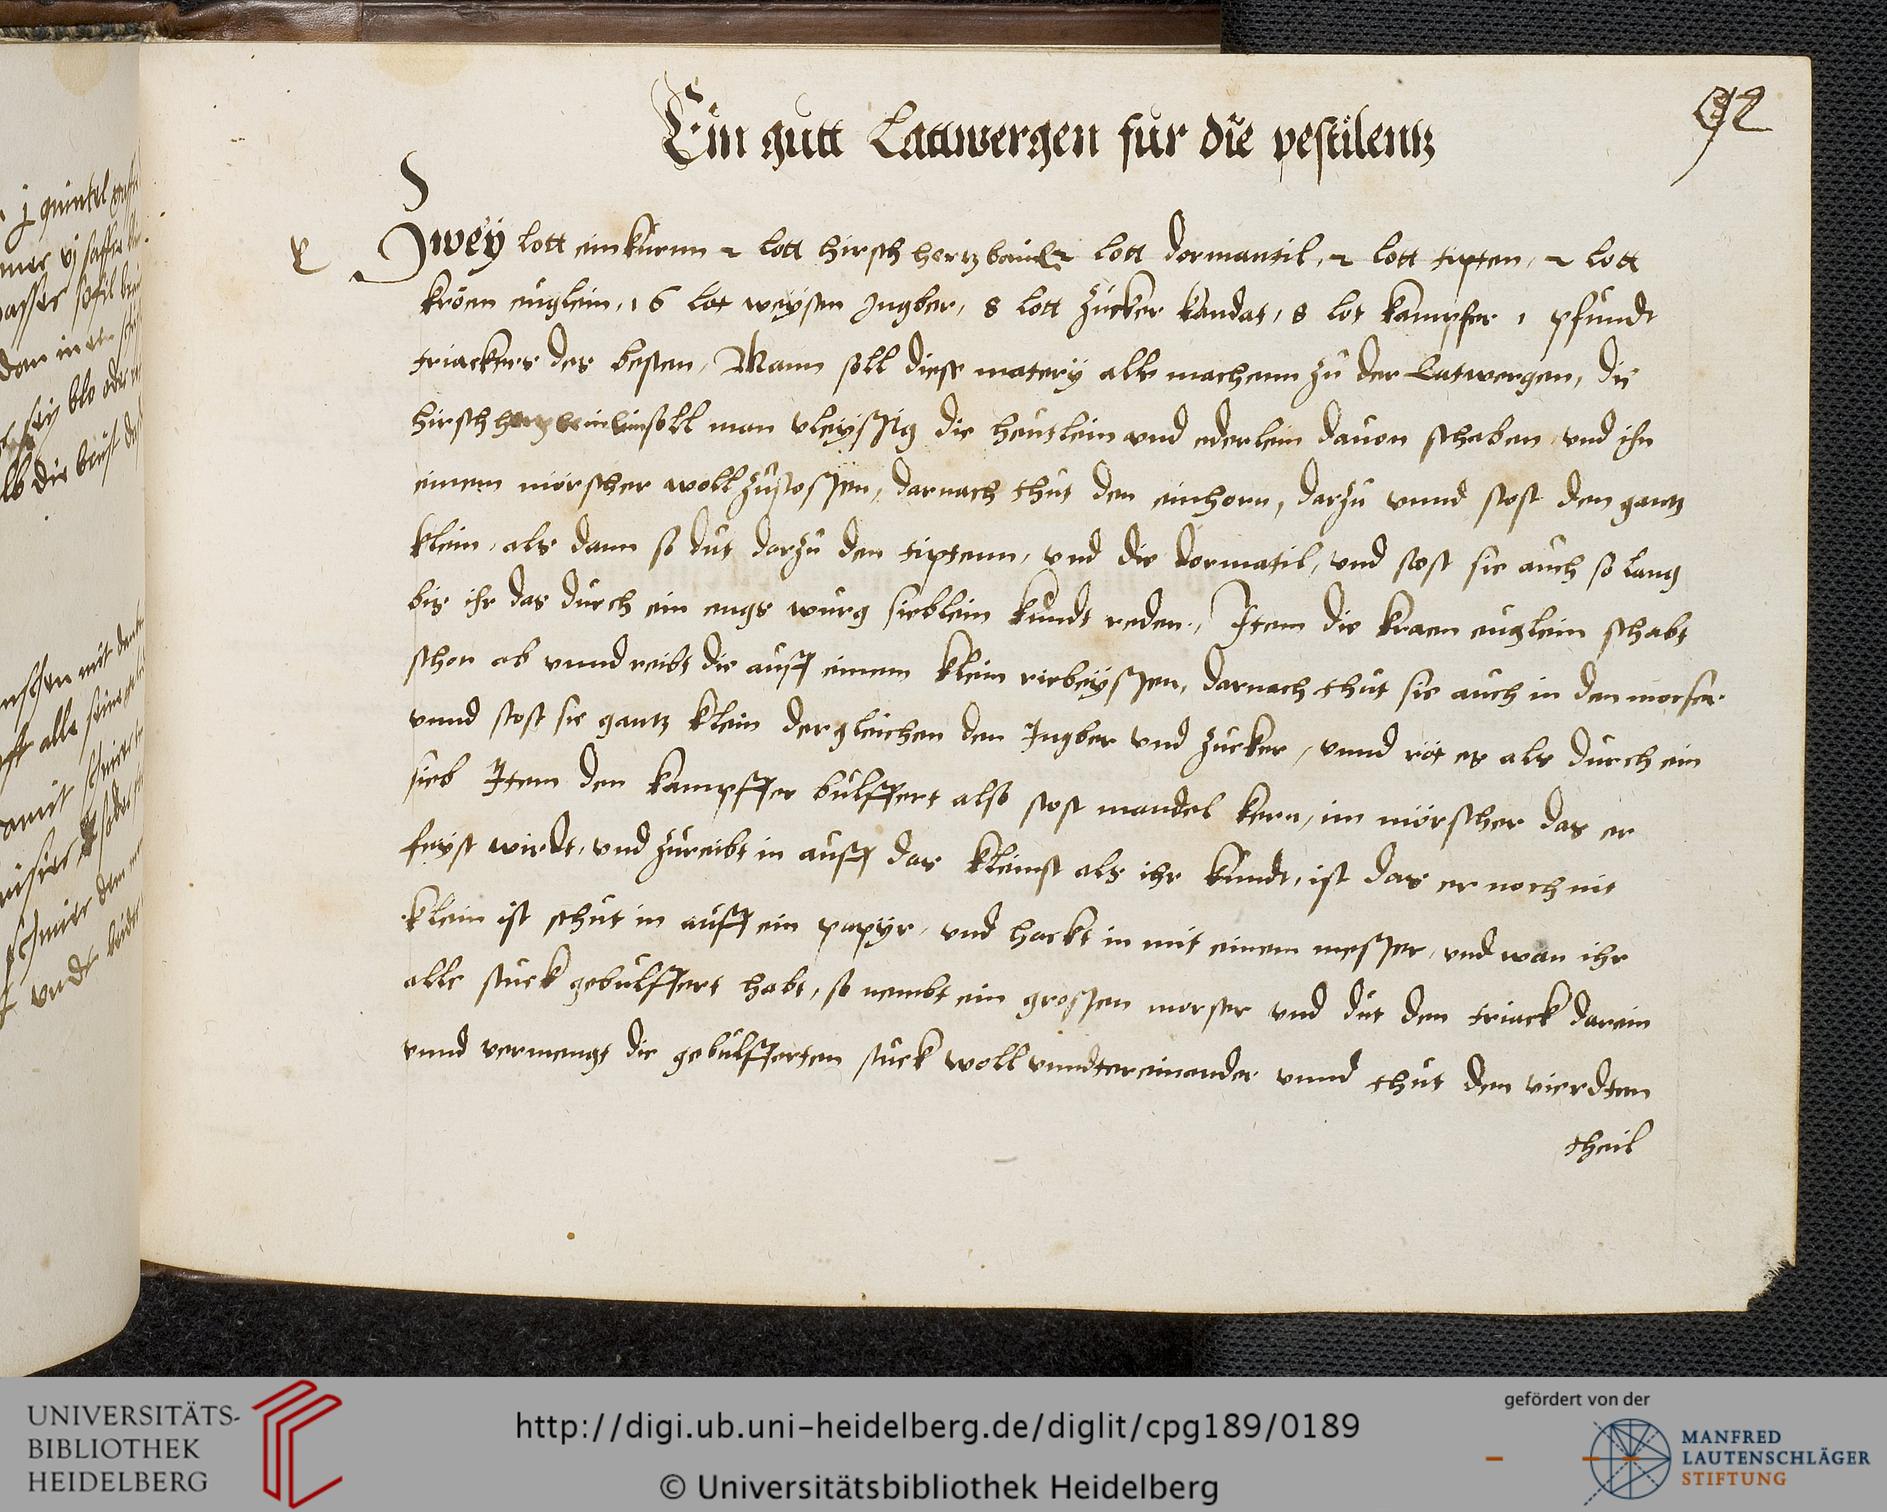 92
Ein gutt Lattwergen fur die pestilentz
Zwey lott einkurnn 2 lott hirsch hertz 2 lott dormantil, 2 lott tipten, 2 lott
kroen euglein, 16 lot weysen Ingber, 8 lott Zucker kandat, 8 lot kampfer 1 pfundt
triackers des besten, Mann soll diese matery alle machenn zu der Latwergen, die
hirsch soll man vleyssig die heutlein und ederlein dauon schaben und ihn
einem mörscher woll zustossen, darnach thut den einhorn, darzu vnnd stost den gantz
klein, als dann so dut darzu den tiptenn, vnd die dormatil, vnd stost sie auch so lang
bis ihr das durch ein engs wurg sieblein kundt reden, Item die kraen euglein schabt
schon ab vnnd reibt die auff einem klein riebeyssen, darnach thut sie auch in den morser
vnnd stost sie gantz klein dergleichen den Ingber vnd zucker, vnnd röt es als durch ein
sieb Item den kampffer bulffert also stost mandel kern, im mörscher das er
feyst wirdt, vnd zureibt in auff das kleinst als ihr kundt, ist das er noch nit
klein ist schut in auff ein papyr, vnd hackt in mit einem messer, vnd wan ihr
alle stuck gebulffert habt, so nembt ein grossen morser vnd dut den triack darein
vnnd vermengt die gebulfferten stuck woll vnndtereinander vnnd thut den vierdten
theil
UNIVERSITÄTS-
BIBLIOTHEK
HEIDELBERG
http://digi.ub.uni-heidelberg.de/diglit/cpg189/0189
© Universitätsbibliothek Heidelberg
gefördert von der
MANFRED
LAUTENSCHLÄGER
STIFTUNG